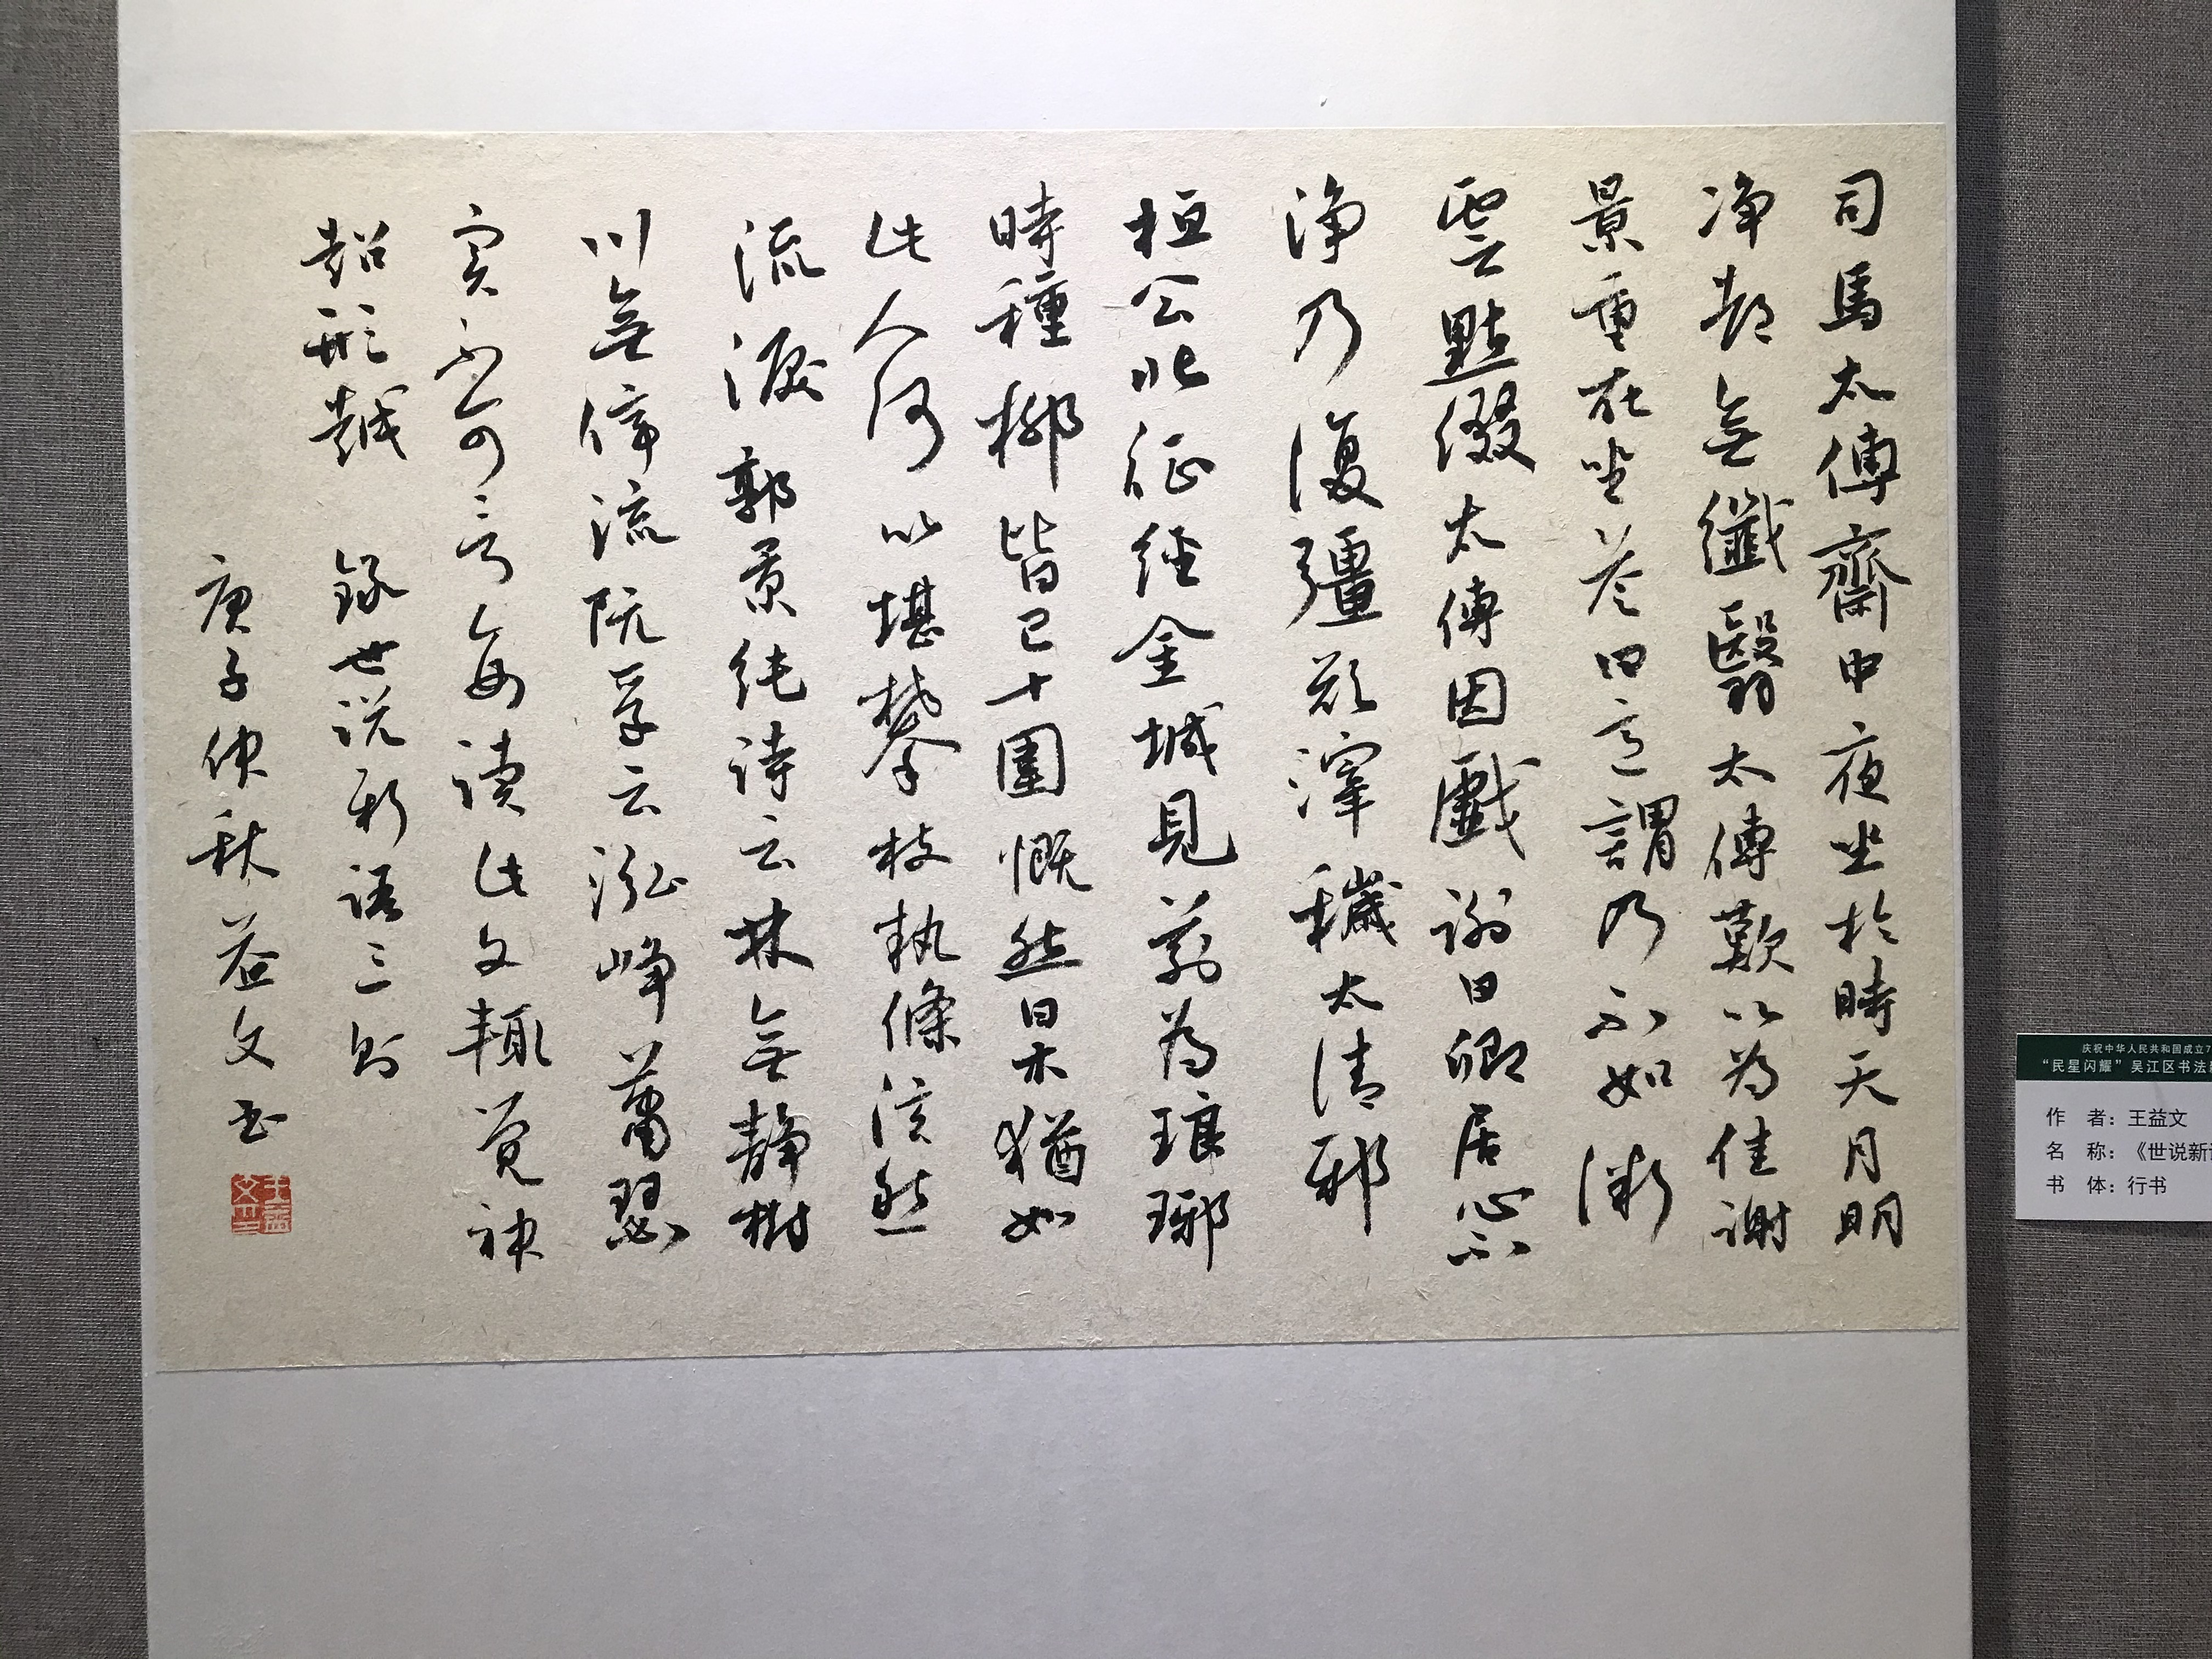 司馬太傅齋中夜坐於時天月明
净都無纖翳太傅歎以為佳謝
景重在坐答曰意謂乃不如微
雲點綴太傅因戲謝曰卿居心不
淨乃復彊欲滓穢太清邪
桓公北征經金城見前為琅琊
時種柳皆已十圍慨然曰木猶如
此人何以堪攀枝執條泫然
流淚郭景純詩云林無靜樹
川無停流阮孚云泓崢蕭瑟
实不可言每讀此文輒覺神
超形越 錄世說新語三則
庚子仲秋益文书
庆祝中华人民共和国成立7
“民星闪耀”吴江区书法
作 者：王益文
名 称：《世说新
书 体：行书